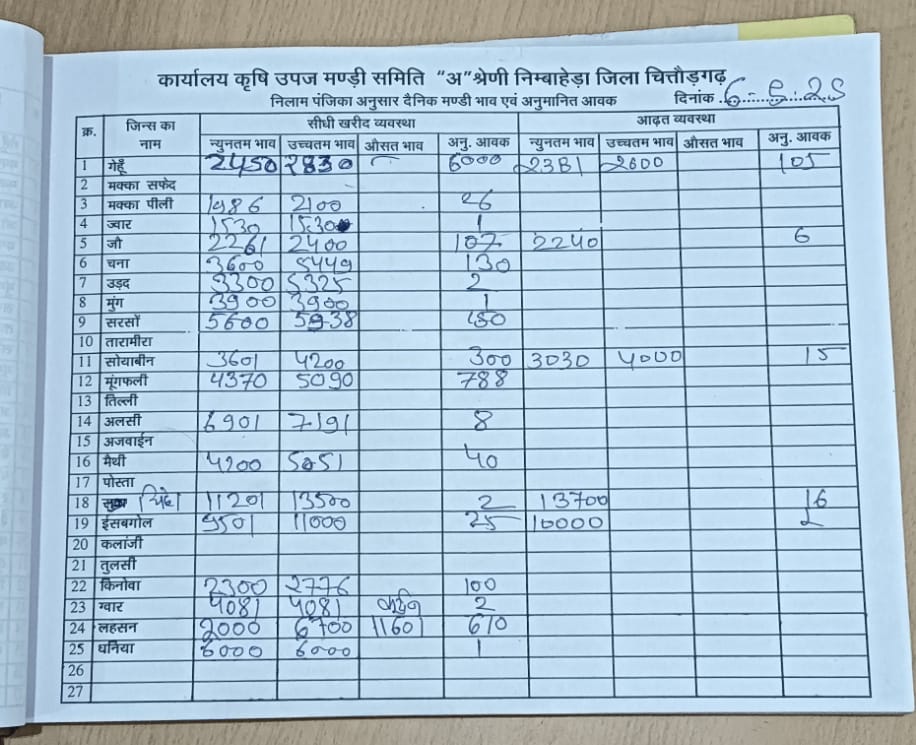 कार्यालय कृषि उपज मण्डी समिति "अ" श्रेणी निम्बाहेड़ा जिला चित्तौड़गढ़
निलाम पंजिका अनुसार दैनिक मण्डी भाव एवं अनुमानित आवक दिनांक 6-5-25
क्र. जिन्स का नाम सीधी खरीद व्यवस्था आढ़त व्यवस्था
न्युनतम भाव उच्चतम भाव औसत भाव अनु. आवक न्युनतम भाव उच्चतम भाव औसत भाव अनु. आवक
1 गेहूँ 2450 2830 6000 2381 2600 105
2 मक्का सफेद
3 मक्का पीली 1986 2100 26
4 ज्वार 1530 1530 1
5 जौ 2261 2400 107 2240 6
6 चना 3600 5449 130
7 उड़द 3300 5325 2
8 मुंग 3900 3900 1
9 सरसों 5600 5938
10 तारामीरा
11 सोयाबीन 3601 4200 300 3030 4000 15
12 मूंगफली 4370 5090 788
13 तिल्ली
14 अलसी 6901 7191 8
15 अजवाईन
16 मैथी 4200 5051 40
17 पोस्ता
18 11201 13500 2 13700 16
19 ईसबगोल 9501 11000 25 10000 2
20 कलांजी
21 तुलसी
22 किनोवा 2300 2776 100
23 ग्वार 4081 4081 2
24 लहसन 2000 6700 11601 610
25 धनिया 6000 6000 1
26
27